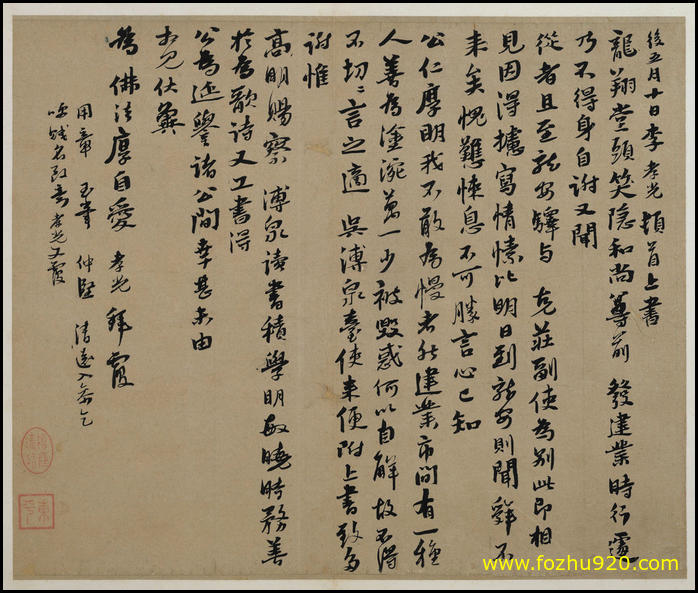 後五月十日李孝光頓首上書
龍翔堂頭笑隱和尚尊前 發建業時行遽
乃不得身自謝又聞
從者且至龍安驛与 克莊副使為別此即相
見因得攄寫情愫比明日到龍安則聞舜不
来矣愧戁悚息不可勝言心已知
公仁厚明我不敢為慢者然建業市間有一種
人善為塗涴萬一少被毀惑何以自解故不得
不切〻言之適 吳溥泉臺使来便附上書致多
謝惟
高明賜察 溥泉讀書積學明敏曉時務善
於為歌詩又工書得
公為延譽諸公間幸甚未由
占見伏冀
為佛法厚自愛 孝光 拜覆
用章 玉書 仲堅 清遠入
名 孝光又覆
www.fozhu920.com